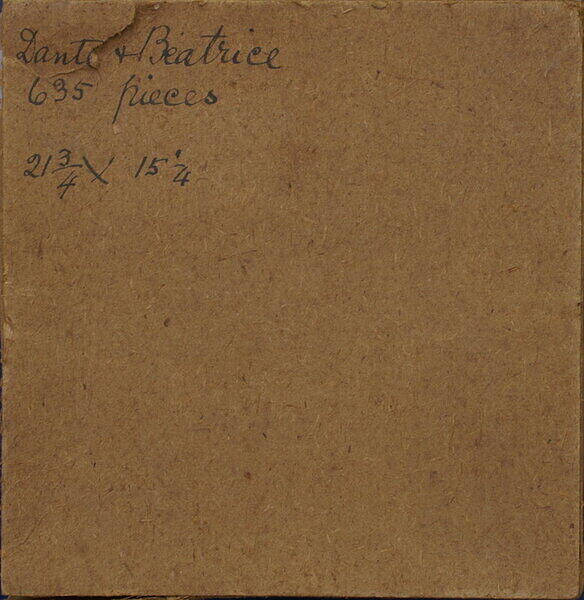 Dante & Beatrice
635 pieces
21 3/4 X 15 1/4